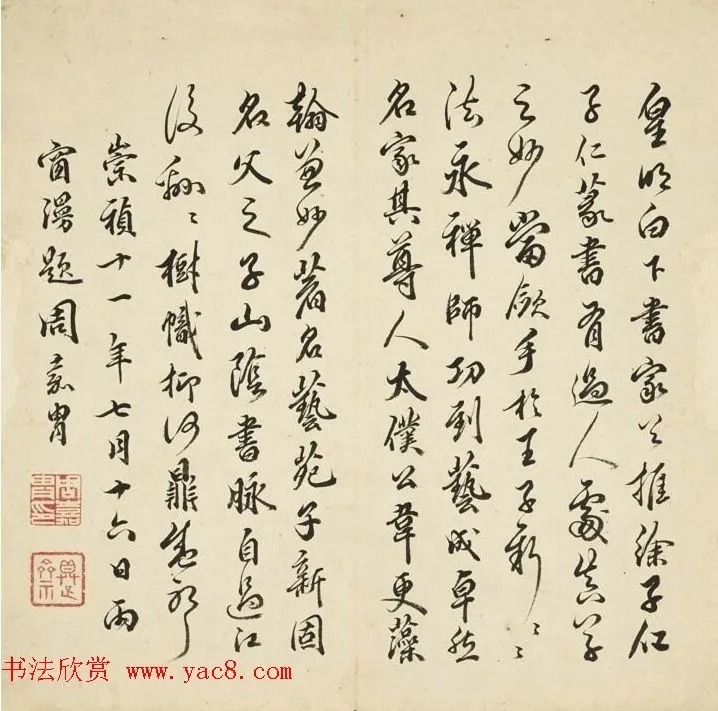 皇明白下書家公推徐子仁
子仁篆書有過人處真草
之妙當斂手於王子新〻〻
法永禪師功到藝成卓然
名家其尊人太僕公韋更藻
翰兼妙著名藝苑子新固
名父之子山陰書脉自過江
後〻樹幟抑何鼎盛耶
崇禎十一年七月十六日雨
窗漫題周嘉冑
周嘉冑印
书法欣赏 www.yac8.com